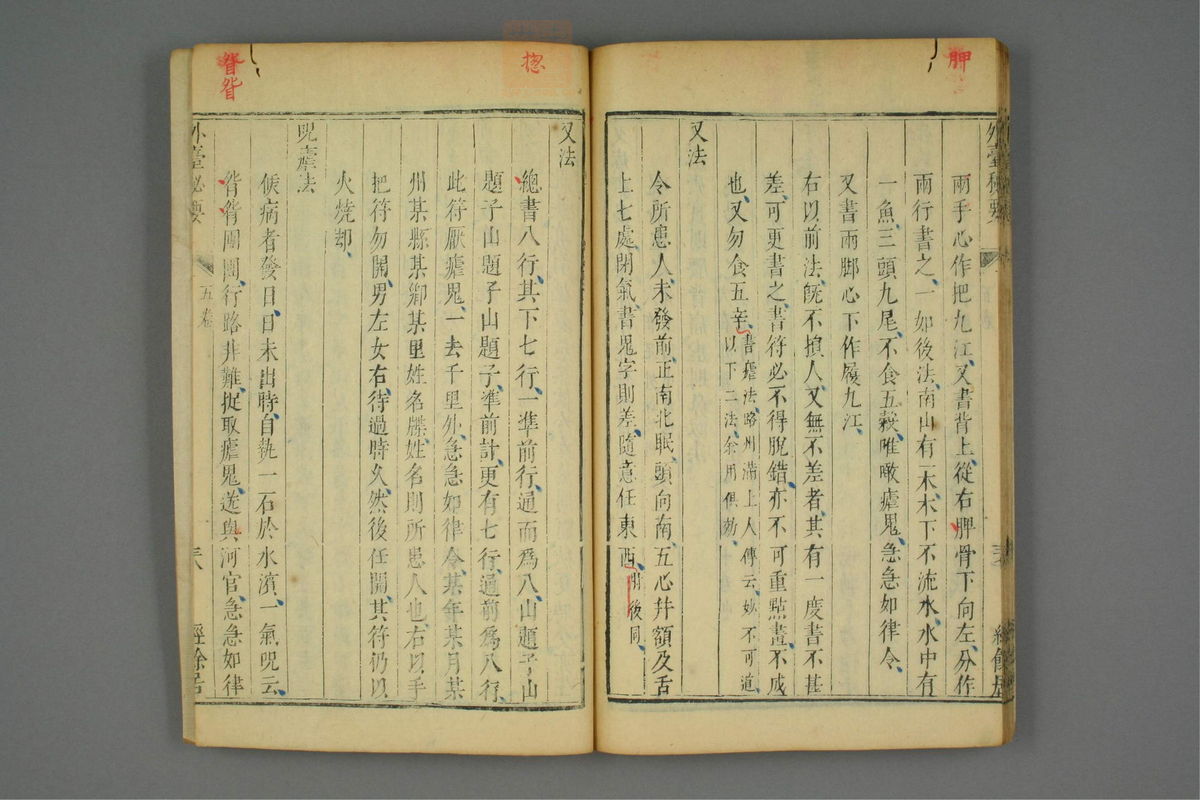 胛
兩手心作把九江、又書背上、從右胛骨下向左、分作
兩行書之、一如後法、南山有一木、木下不流水、水中有
一魚、三頭九尾、不食五穀、唯噉瘧鬼、急急如律令、
又書兩脚心下作履九江、
右以前法旣不損人、又無不差者、其有一度書不甚
差、可更書之、書符必不得脫錯、亦不可重點畫、不成
也、又勿食五辛、書瘧法、略州滿上人傳云、妙不可道、
以下二法、余用俱効、
又法
令所患人、未發前、正南北眠、頭向南、五心幷額及舌
上七處、閉氣、書鬼字則差、隨意任東西、開後同、
揔
又法
總書八行、其下七行、一準前行、通而爲八、山題子山
題子山題子山題子、準前計、更有七行、通前爲八行、
此符厭瘧鬼、一去千里外、急急如律令、某年某月某
州某縣某鄉某里姓名牒、姓名則所患人也、右以手
把符勿開、男左女右、待過時久、然後任開、其符仍以
火燒却、
呪瘧法
候病者發日、日未出時、自執一石於水濱、一氣呪云、
眢眢團團、行路非難、捉取瘧鬼、送與河官、急急如律
眢眢
外臺祕要
五卷
三八
經餘居